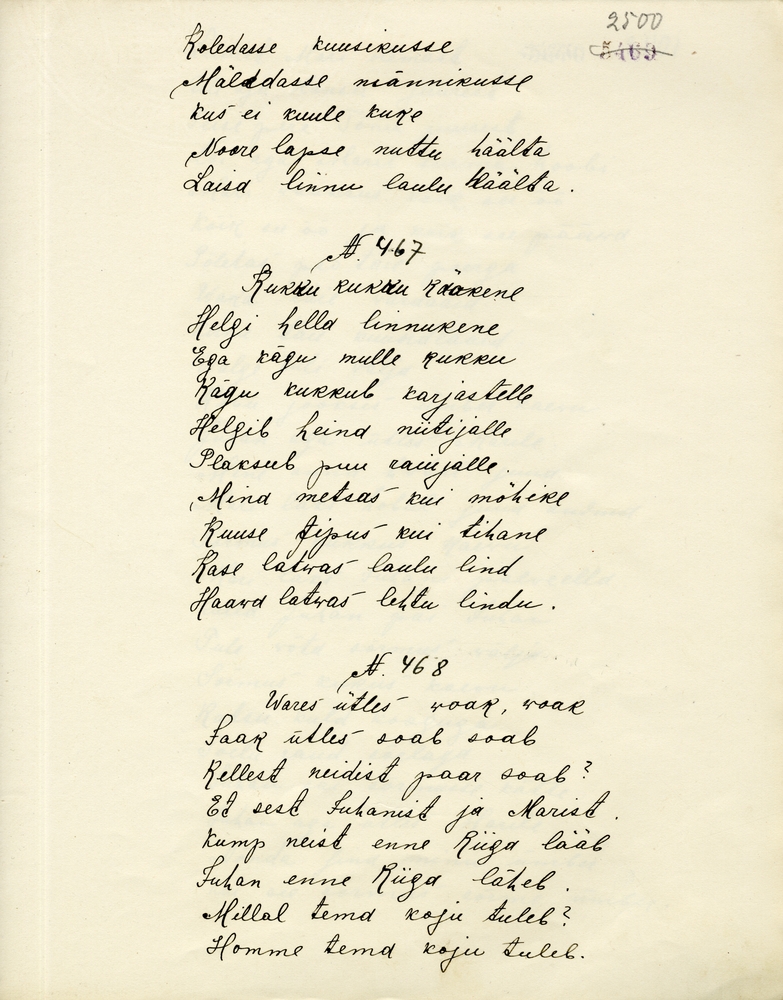 2500
5469
Koledasse kuusikusse
Mäledasse männikusse
kus ei kuule kuke
Noore lapse nuttu häälta
Laisa linnu laulu häälta.
N. 467
Kukku kukku kääkene
Helgi hella linnukene
Ega kägu mulle kukku
Kägu kukkub karjastelle
Helgib heina niitijalle
Plaksub puu raiujalle.
Mind metsas kui mõhike
Kuuse tipus kui tihane
Kase latwas laulu lind
Haawa latwas lehtu lindu.
N. 468
Wares ütles waak, waak
Saak ütles saab saab
Kellest neidist paar saab?
Et sest Juhanist ja Marist.
Kump neist enne Riiga lääb
Juhan enne Riiga läheb.
Millal tema koju tuleb?
Homme tema koju tuleb.